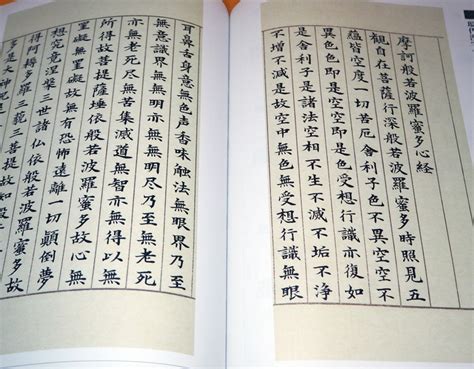 摩訶般若波羅蜜多心経
觀自在菩薩行深般若波羅蜜多時照見五
蘊皆空度一切苦厄舍利子色不異空空不
異色色即是空空即是色受想行識亦復如
是舍利子是諸法空相不生不滅不垢不淨
不增不減是故空中無色無受想行識無眼
耳鼻舌身意無色聲香味触法無眼界乃至
無意識界無無明亦無無明尽乃至無老死
亦無老死尽無苦集滅道無智亦無得以無
所得故菩提薩埵依般若波羅蜜多故心無
罣礙無罣礙故無有恐怖遠離一切顛倒夢
想究竟涅槃三世諸佛依般若波羅蜜多故
得阿耨多羅三藐三菩提故知般
多是大神呪是